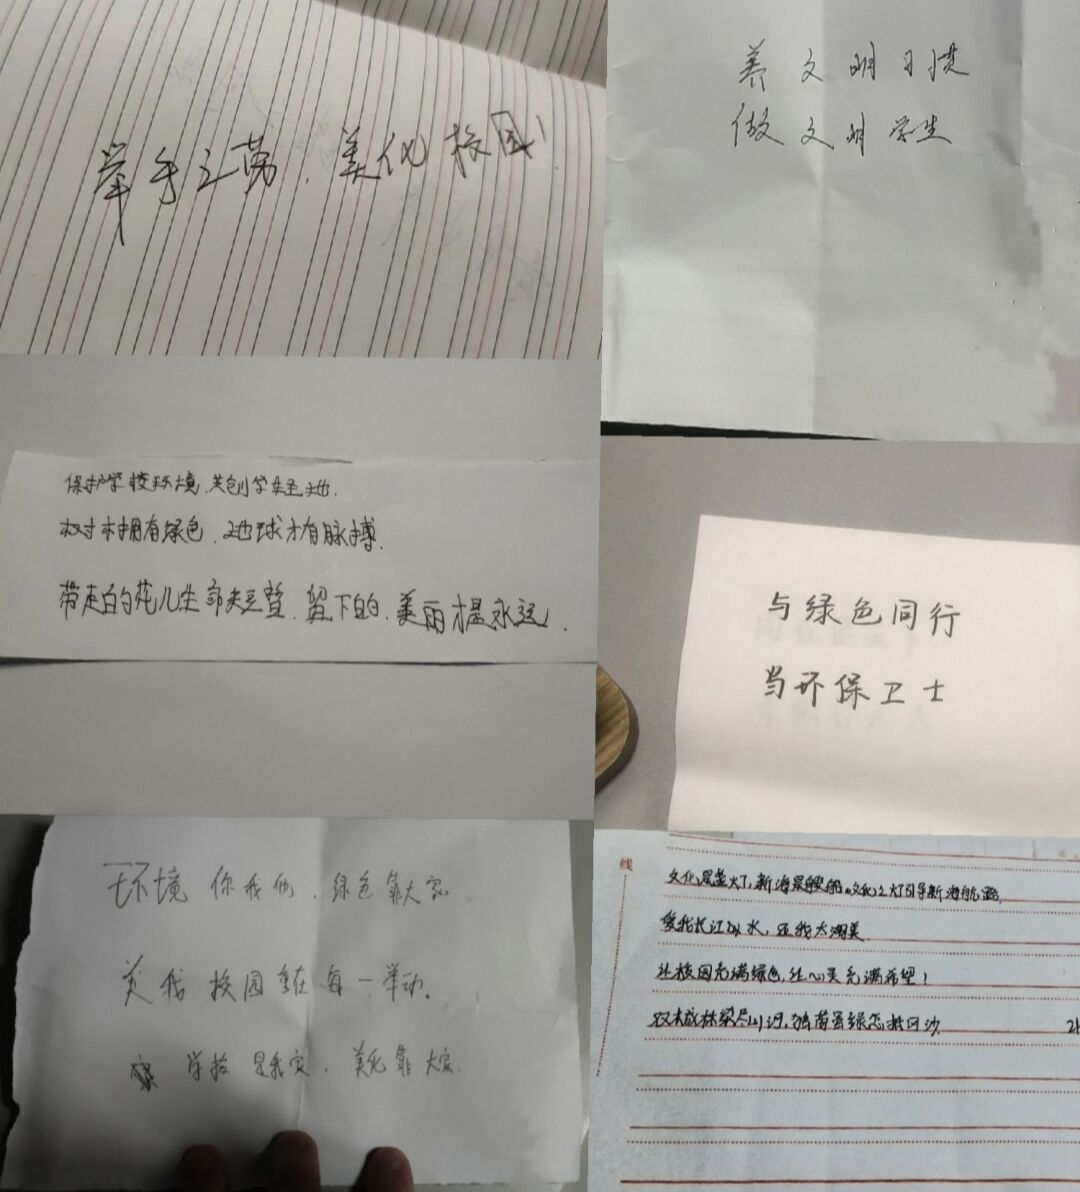 举手之劳，美化校园！
养文明习惯
做文明学生
保护学校环境，共创学
树木拥有绿色，地球才有脉搏。
带走的花儿生命短暂，留下的，美丽才是永远！
与绿色同行
当环保卫士
环境你我他，绿色靠大家。
美我校园重在每一举动。
学校是我家，美化靠大家。
线
文化是盏灯，新海是艘船。文化之灯引导新海航路。
爱我长江水，还我太湖美
让校园充满绿色，让心灵充满希望！
双木成林梁尽山河，独苗